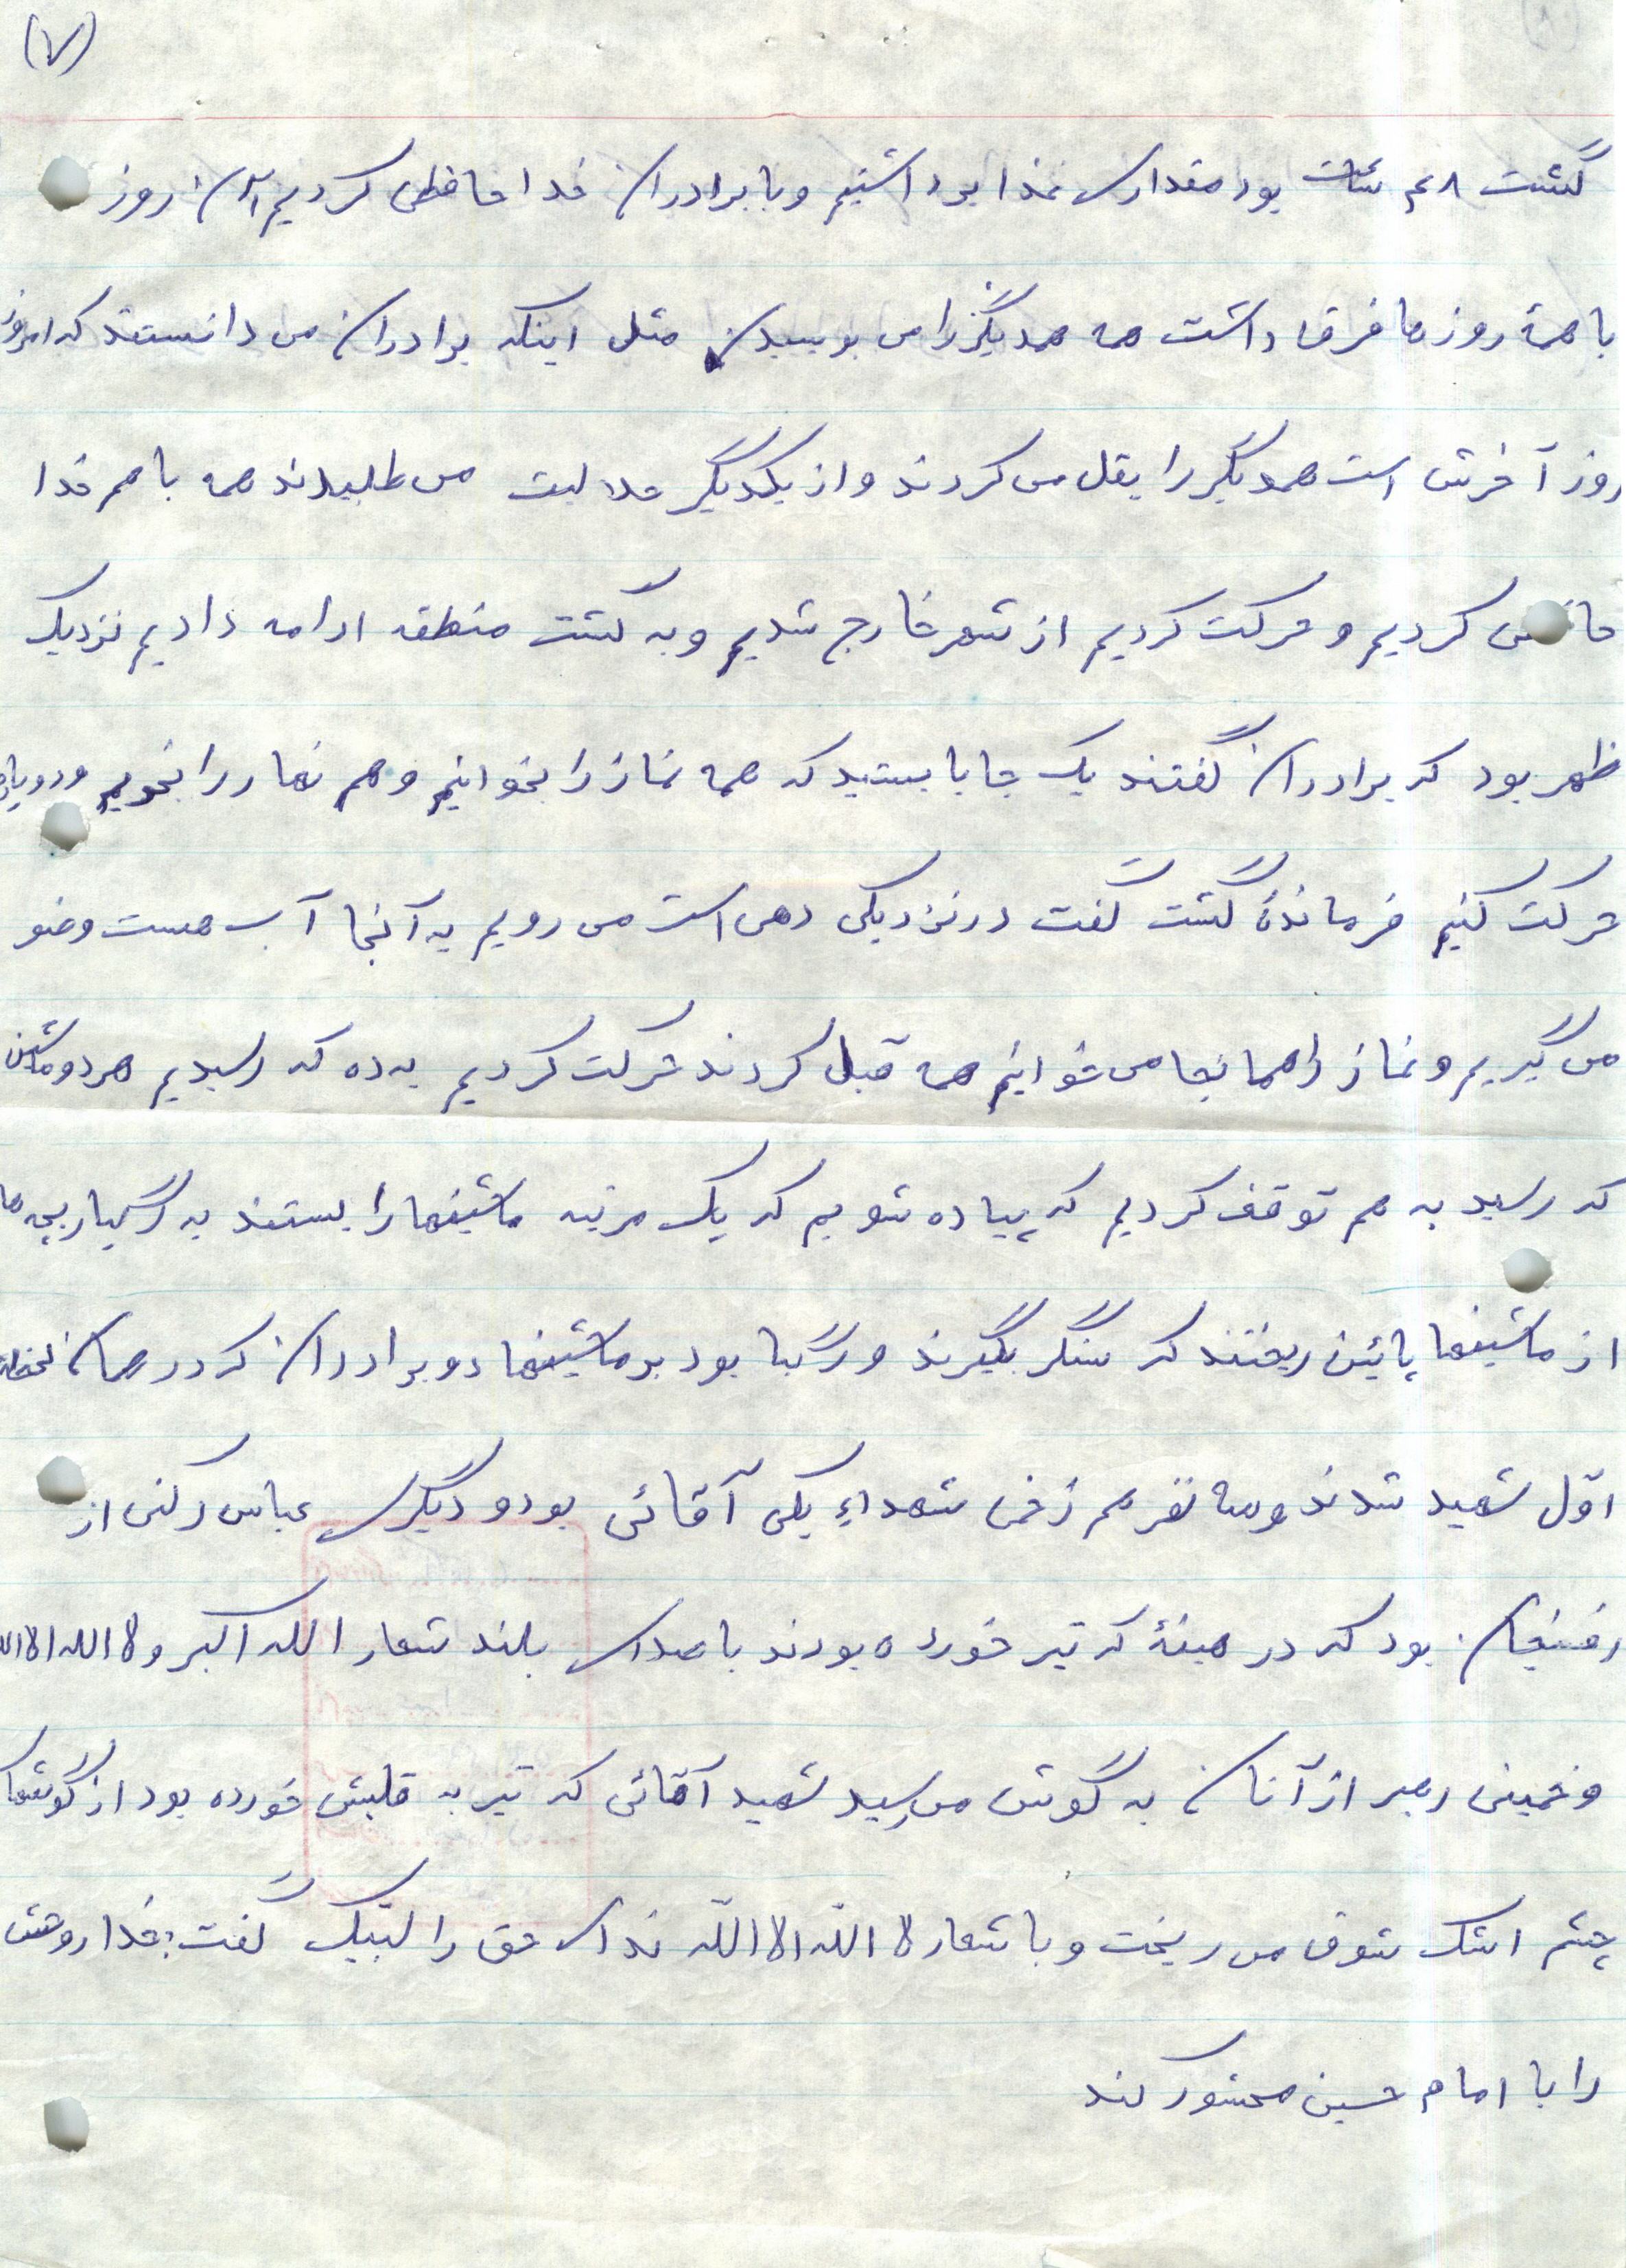 (۷)
گشت ۴۸ ساعت بود مقداری غذا برداشتیم و با برادران خدا حافظی کردیم آن روز
با همۀ روزها فرق داشت همه همدیگر را می بوسیدن مثل اینکه برادران می دانستند که امروز
روز آخرش است همدیگر را بقل می کردند و از یکدیگر حلالیت می طلبیدند همه با هم خدا
حافظی کردیم و حرکت کردیم از شهر خارج شدیم و به گشت منطقه ادامه دادیم نزدیک
ظهر بود که برادران گفتند یک جا بایستید که هم نماز را بخوانیم و هم نهار را بخوریم و دوباره
حرکت کنیم فرماندۀ گشت گفت در نزدیکی دهی است می رویم به آنجا آب هست وضو
می گیریم و نماز را همانجا می خوانیم همه قبل کردند حرکت کردیم به ده که رسیدیم هر دو ماشین
که رسید به هم توقف کردیم که پیاده شویم که یک مرتبه ماشینها را بستند به رگبار بچه ها
از ماشینها پائین ریختند که سنگر بگیرند و رگبا بود بر ماشینها دو برادران که در همان لحظات
اوّل شهید شدند و سه نفر هم زخمی شهداء یکی آقائی بود و دیگری عباس رکنی از
رفسنجان بود که در هینۀ که تیر خورده بودند با صدای بلند شعار الله اکبر و لا الله الا الله
و خمینی رهبر از آنان به گوش می رسید شهید آقائی که تیر به قلبش خورده بود از گوشهای
چشم اشک شوق می ریخت و با شعار لا اللّه الا اللّه ندای حق را لبّیک گفت: خدا روحش
را با امام حسین محشور کند